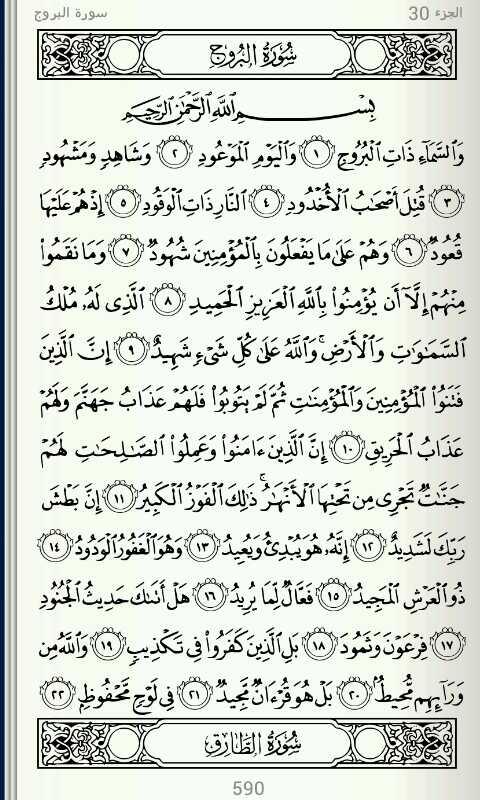 الجزء 30 سورة البروج
سُورَةُ البُرُوجِ
بِسْمِ اللَّهِ الرَّحْمَٰنِ الرَّحِيمِ
وَالسَّمَاءِ ذَاتِ الْبُرُوجِ ١ وَالْيَوْمِ الْمَوْعُودِ ٢ وَشَاهِدٍ وَمَشْهُودٍ
٣ قُتِلَ أَصْحَابُ الْأُخْدُودِ ٤ النَّارِ ذَاتِ الْوَقُودِ ٥ إِذْ هُمْ عَلَيْهَا
قُعُودٌ ٦ وَهُمْ عَلَىٰ مَا يَفْعَلُونَ بِالْمُؤْمِنِينَ شُهُودٌ ٧ وَمَا نَقَمُوا
مِنْهُمْ إِلَّا أَن يُؤْمِنُوا بِاللَّهِ الْعَزِيزِ الْحَمِيدِ ٨ الَّذِي لَهُ مُلْكُ
السَّمَاوَاتِ وَالْأَرْضِ ۚ وَاللَّهُ عَلَىٰ كُلِّ شَيْءٍ شَهِيدٌ ٩ إِنَّ الَّذِينَ
فَتَنُوا الْمُؤْمِنِينَ وَالْمُؤْمِنَاتِ ثُمَّ لَمْ يَتُوبُوا فَلَهُمْ عَذَابُ جَهَنَّمَ وَلَهُمْ
عَذَابُ الْحَرِيقِ ١٠ إِنَّ الَّذِينَ ءَامَنُوا وَعَمِلُوا الصَّالِحَاتِ لَهُمْ
جَنَّاتٌ تَجْرِي مِن تَحْتِهَا الْأَنْهَارُ ۚ ذَٰلِكَ الْفَوْزُ الْكَبِيرُ ١١ إِنَّ بَطْشَ
رَبِّكَ لَشَدِيدٌ ١٢ إِنَّهُ هُوَ يُبْدِئُ وَيُعِيدُ ١٣ وَهُوَ الْغَفُورُ الْوَدُودُ ١٤
ذُو الْعَرْشِ الْمَجِيدُ ١٥ فَعَّالٌ لِّمَا يُرِيدُ ١٦ هَلْ أَتَاكَ حَدِيثُ الْجُنُودِ
١٧ فِرْعَوْنَ وَثَمُودَ ١٨ بَلِ الَّذِينَ كَفَرُوا فِي تَكْذِيبٍ ١٩ وَاللَّهُ مِن
وَرَائِهِم مُّحِيطٌ ٢٠ بَلْ هُوَ قُرْءَانٌ مَّجِيدٌ ٢١ فِي لَوْحٍ مَّحْفُوظٍ ٢٢
سُورَةُ الطَّارِقِ
590